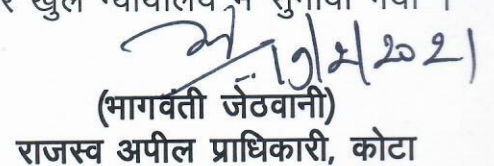 खुले न्यायालय में सुनाया गया ।
19/2/2021
(भागवंती जेठवानी)
राजस्व अपील प्राधिकारी, कोटा